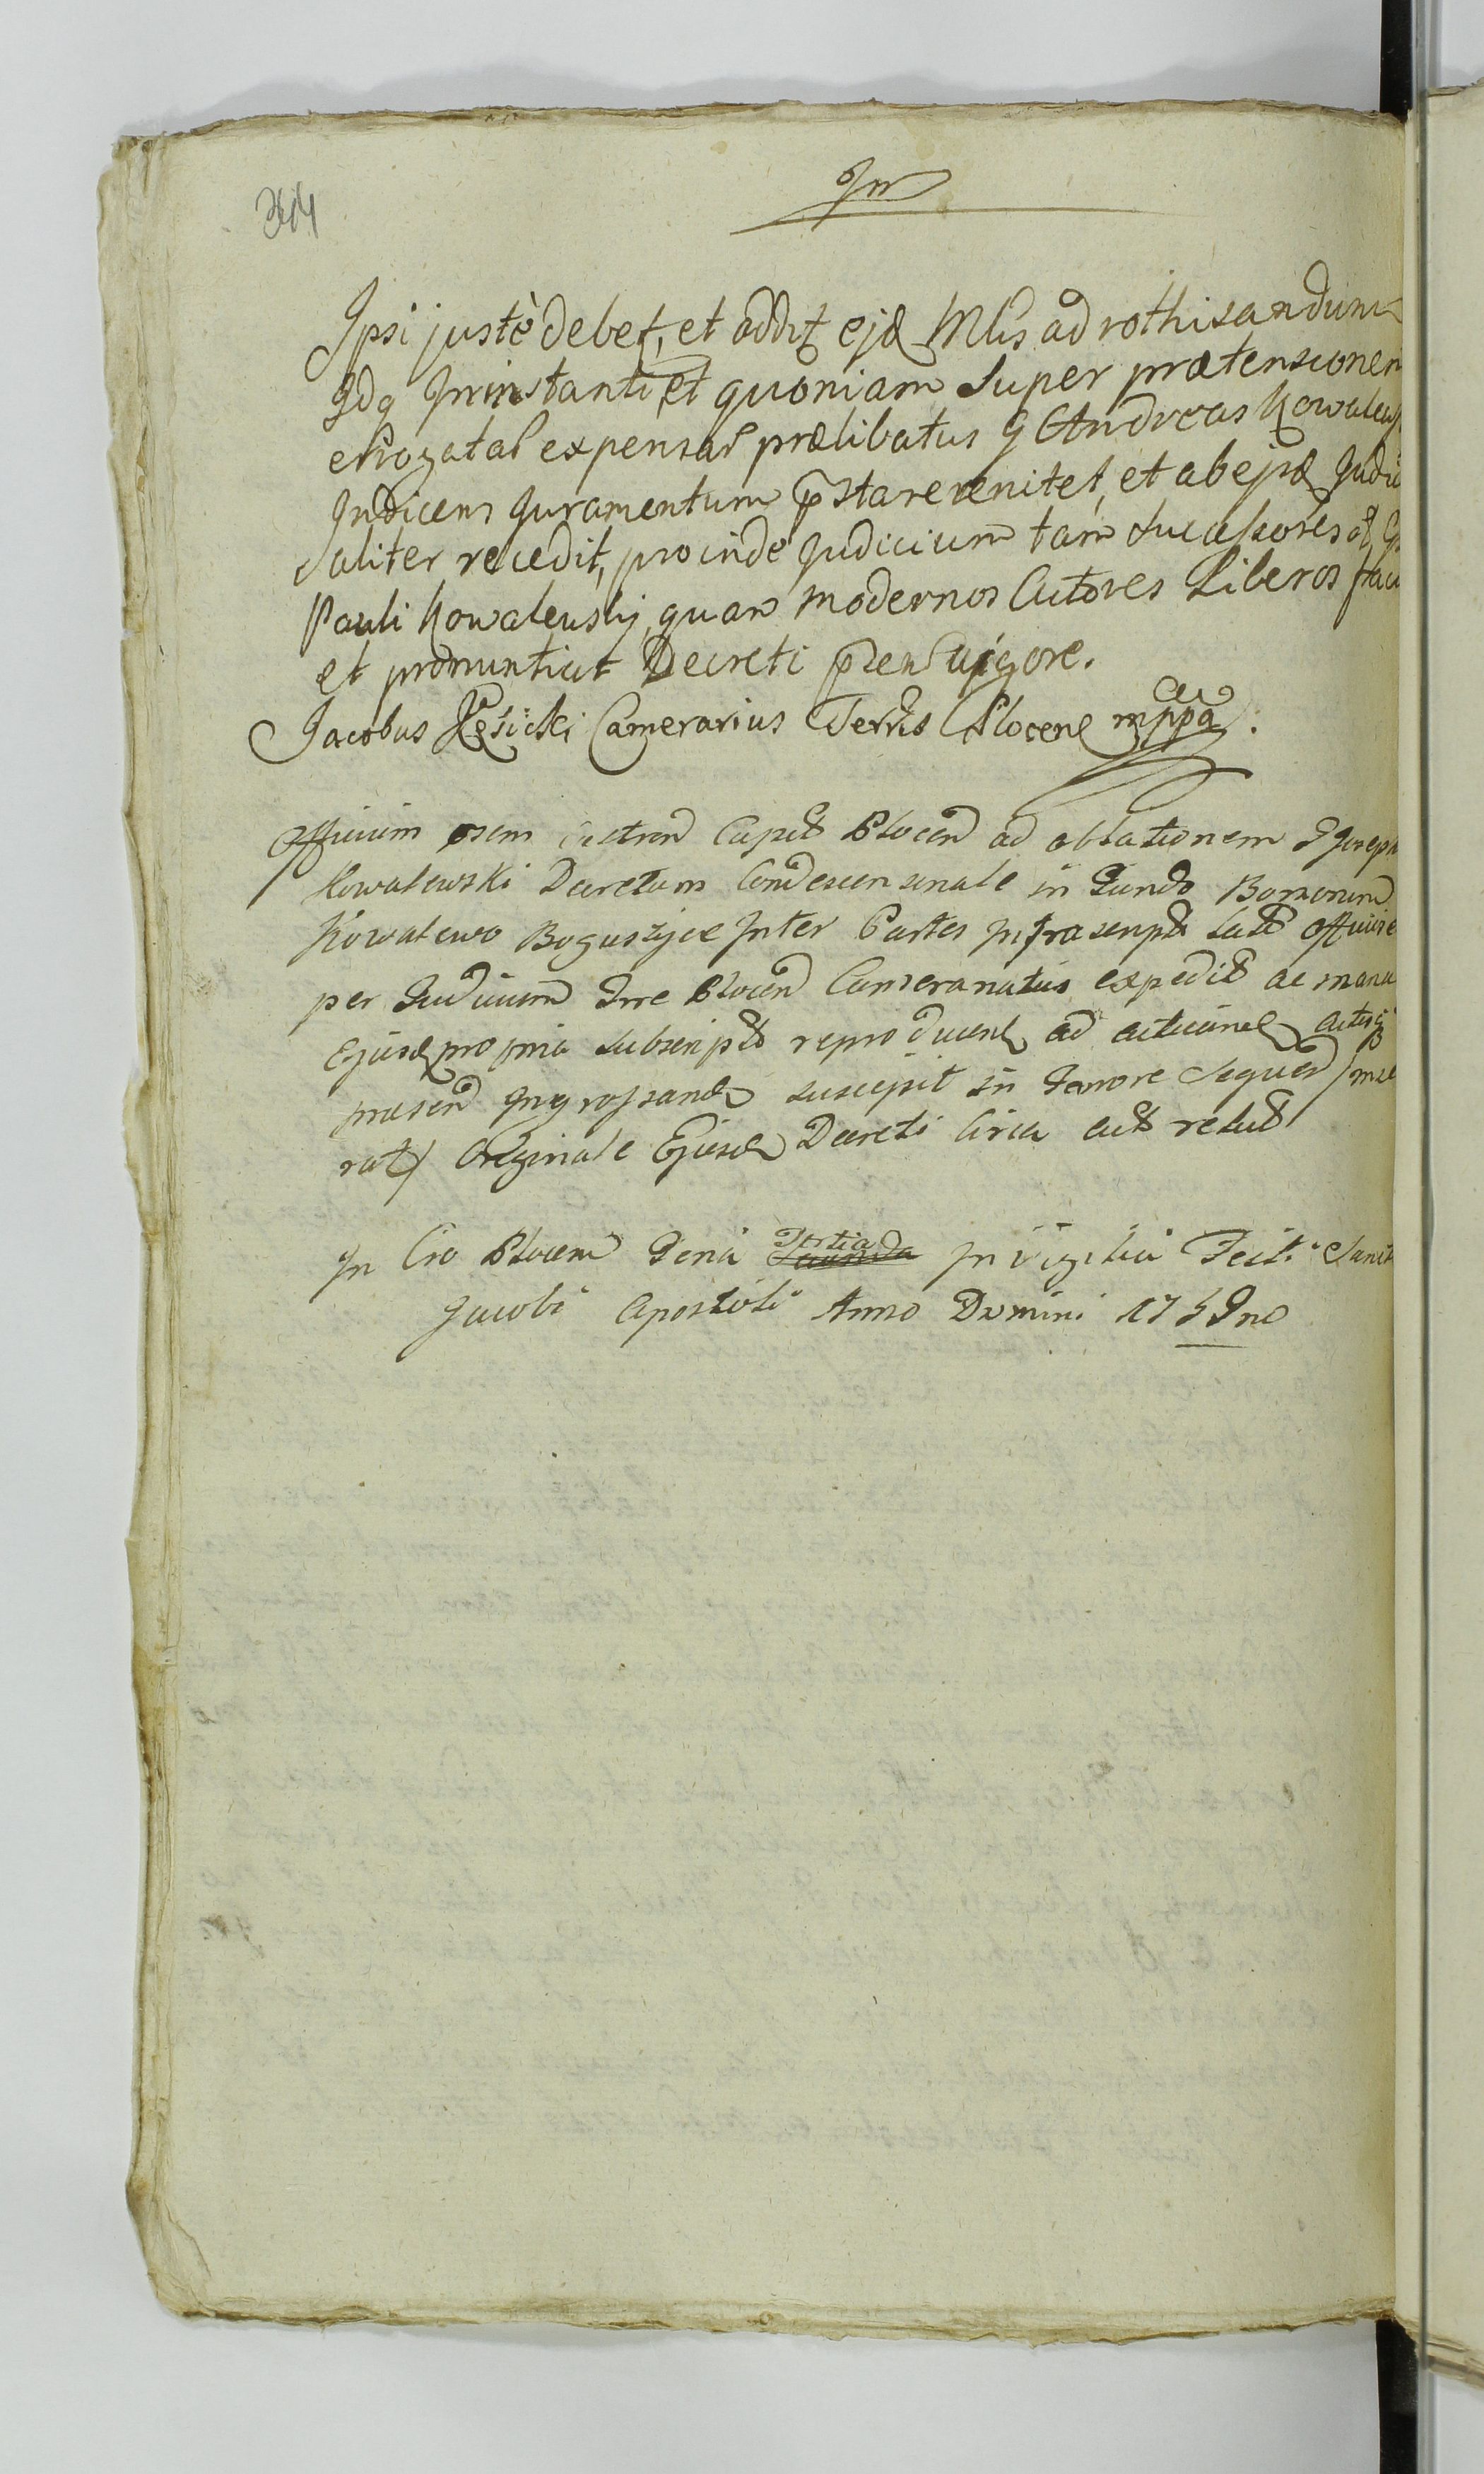 In
Ipsi justè debet, et addit ejd Mlis ad rothisandum
Idq in instanti, et quoniam super prætensionem
erogatar expensar prælibatus G Andreas Kowalews
Indicens Juramentum p̃stare renitet, et ab ejsd Judi
aliter recedit, proinde Judicium tam Sucessores
Pauli Kowalewskj, quam modernos Actores Liberos fac
et pronuntiat Decreti p̃sen vigore.
Jacobus Camerarius Terrs Plocens mppa
Officium Castren Capit Plocen ad oblationem G Joseph
Kowalewski Decretum Condescensonale in Fundo Bonorum
Kowalewo Boguszyce Inter Partes Infrascript Lat
per Judicium Trre Plocen Cameranatus expedit ac manu
Ejusd propria subscript reproducen ad acticand Actisq
præsen Ingrossand suscepit in Tenore Sequen
rat) Originale Ejusd Decreti circa act relict
In Cro Plocen Feria Tertia In Vigilia Festi Sanct
Jacobi Apostoli Anno Domini